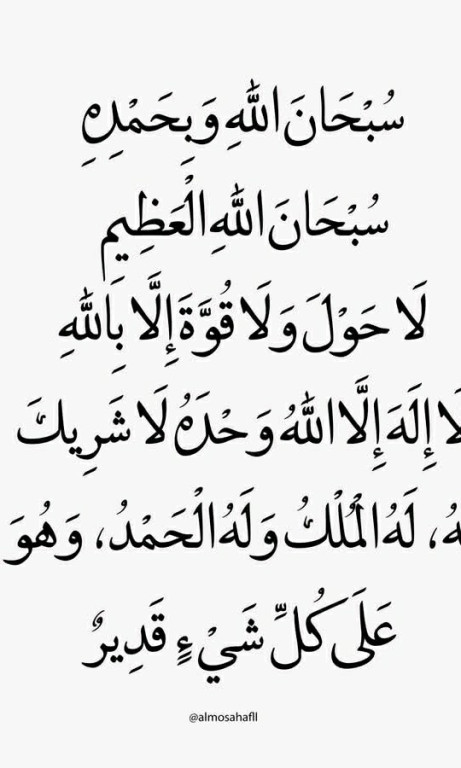 سُبْحَانَ اللهِ وَبِحَمْدِهِ
سُبْحَانَ اللهِ الْعَظِيمِ
لَا حَوْلَ وَلَا قُوَّةَ إِلَّا بِاللهِ
لَا إِلَهَ إِلَّا اللهُ وَحْدَهُ لَا شَرِيكَ
لَهُ، لَهُ الْمُلْكُ وَلَهُ الْحَمْدُ، وَهُوَ
عَلَى كُلِّ شَيْءٍ قَدِيرٌ
@almosahafll